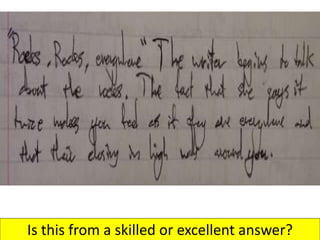 "Rocks, Rocks, everywhere" The writer begins to talk
about the rocks. The fact that she says it
twice makes you feel as if they are everywhere and
that their closing in high wall around you.
Is this from a skilled or excellent answer?